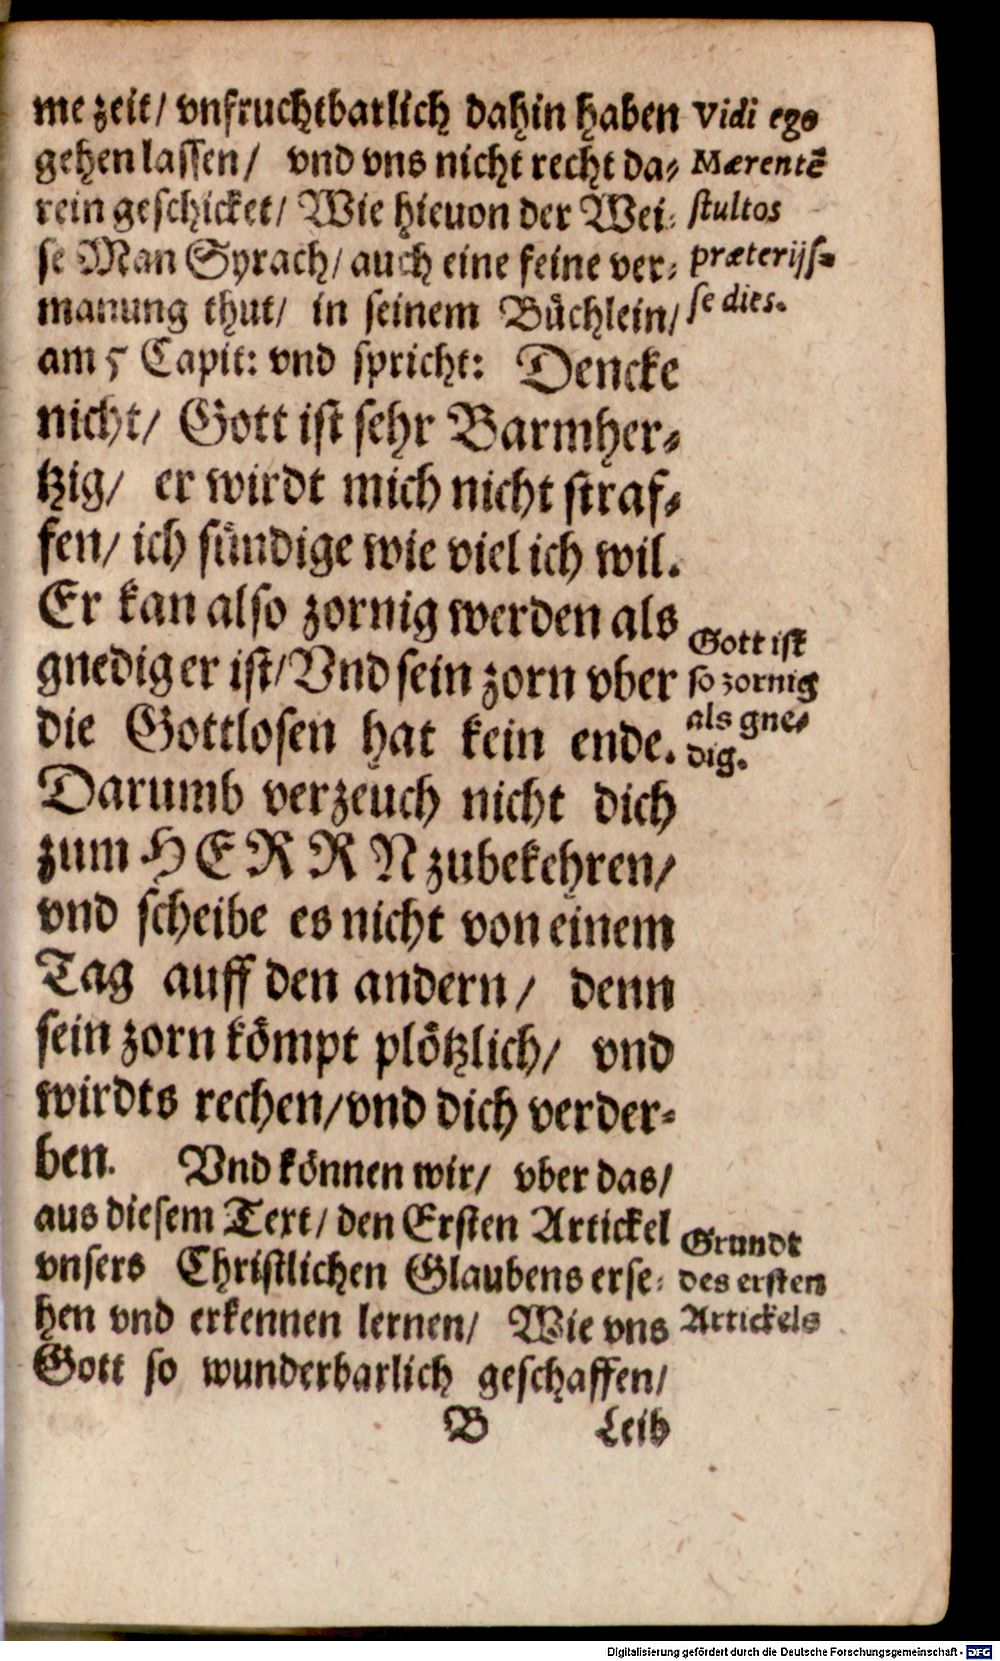 me zeit/ vnfruchtbarlich dahin haben
gehen lassen/ vnd vns nicht recht da⸗
rein geschicket/ Wie hieuon der Wei⸗
se Man Syrach/ auch eine feine ver⸗
manung thut/ in seinem Büchlein/
am 5 Capit: vnd spricht: Dencke
nicht/ Gott ist sehr Barmher⸗
tzig/ er wirdt mich nicht straf⸗
fen/ ich sündige wie viel ich wil.
Er kan also zornig werden als
gnedig er ist/ Vnd sein zorn vber
die Gottlosen hat kein ende.
Darumb verzeuch nicht dich
zum HERRN zubekehren/
vnd scheibe es nicht von einem
Tag auff den andern/ denn
sein zorn kömpt plötzlich/ vnd
wirdts rechen/ vnd dich verder⸗
ben. Vnd können wir/ vber das/
aus diesem Text/ den Ersten Artickel
vnsers Christlichen Glaubens erse⸗
hen vnd erkennen lernen/ Wie vns
Gott so wunderbarlich geschaffen/
B Leib
Vidi ego
Mærentē
stultos
præterijs⸗
se dies.
Gott ist
so zornig
als gne⸗
dig.
Grundt
des ersten
Artickels
Digitalisierung gefördert durch die Deutsche Forschungsgemeinschaft - DFG